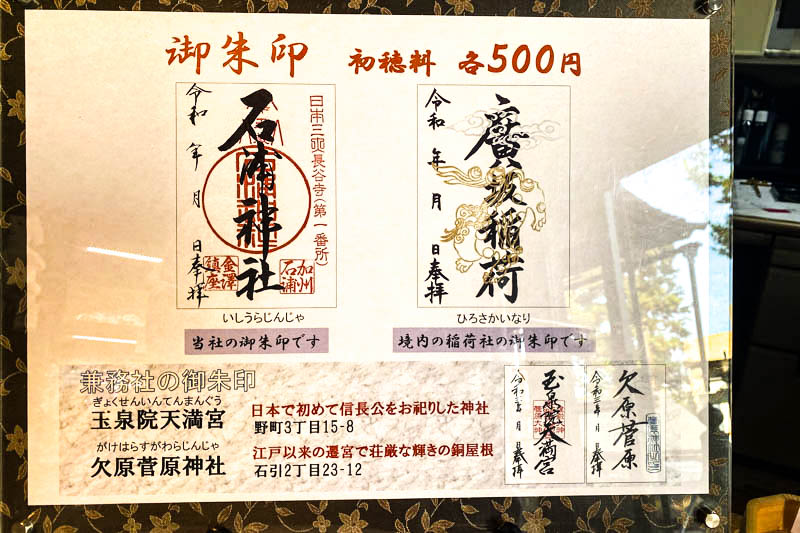 御朱印 初穂料 各500円
日本三所長谷寺(第一番所)
石浦神社
令和 年 月 日奉拝
加州石浦
金澤鎮座
廣坂稲荷
令和 年 月 日奉拝
いしうらじんじゃ
当社の御朱印です
ひろさかいなり
境内の稲荷社の御朱印です
兼務社の御朱印
ぎょくせんいんてんまんぐう
玉泉院天満宮
日本で初めて信長公をお祀りした神社
野町3丁目15-8
がけはらすがわらじんじゃ
欠原菅原神社
江戸以来の遷宮で荘厳な輝きの銅屋根
石引2丁目23-12
玉泉院天満宮
日奉拝
欠原菅原
日奉拝